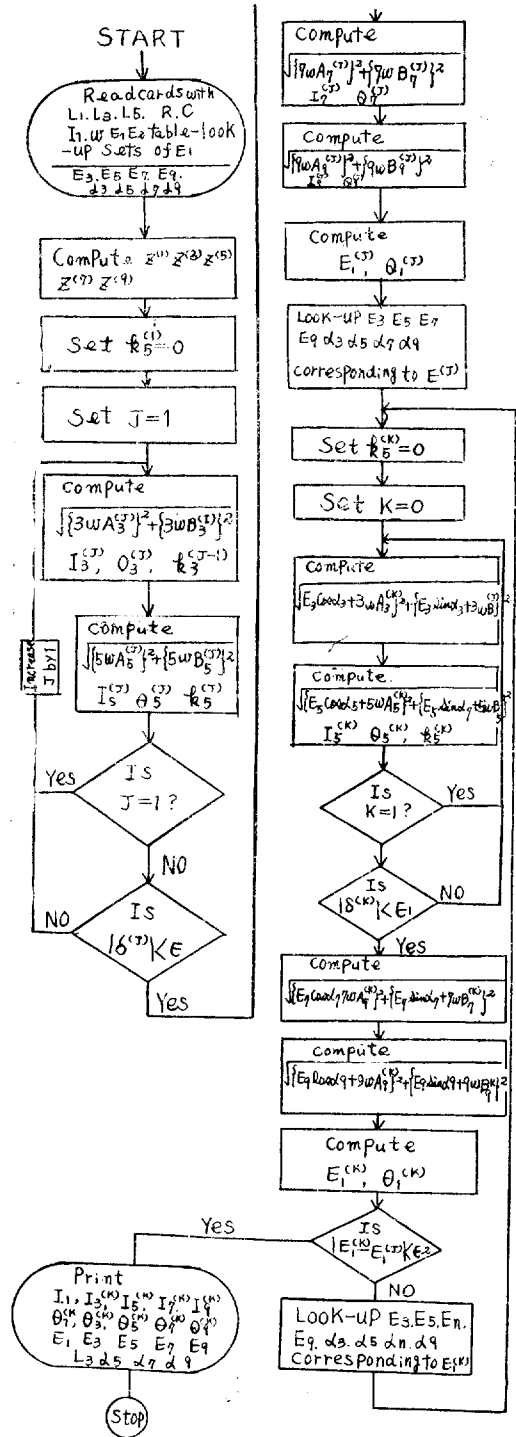 START
Read cards with
L1. L3. L5. R.C
I1. w E1 E2 table-look
-up Sets of E1
E3. E5 E7. E9.
α3 α5 α7 α9
Compute Z^(1) Z^(3) Z^(5)
Z^(7) Z^(9)
Set k5^(1)=0
Set J=1
Compute
√{3wA3^(J)}²+{3wB3^(I)}²
I3^(J), O3^(J), k3^(J-1)
Compute
√{5wA5^(J)}²+{5wB5^(J)}²
I5^(J) θ5^(J) k5^(J)
Increase
J by 1
Is
J=1?
Yes
NO
Is
|δ^(J)|<E
NO
Yes
Compute
√{7wA7^(J)}²+{7wB7^(J)}²
I7^(J) θ7^(J)
Compute
√{9wA9^(J)}²+{9wB9^(J)}²
Compute
E1^(J), θ1^(J)
LOOK-UP E3 E5 E7
E9 α3 α5 α7 α9
corresponding to E^(J)
Set k5^(K)=0
Set K=0
Compute
√{E3 cosα3+3wA3^(K)}²+{E3 sinα3+3wB^(J)}²
Compute.
√{E5 cosα5+5wA5^(K)}²+{E5 sinα7+5wB5}²
I5^(K) θ5^(K), k5^(K)
Is
K=1?
Yes
Is
|δ^(K)|<E1
NO
Yes
Compute
√{E7 cosα7 7wA7^(K)}²+{E7 sinα7+7wB7^(K)}²
Compute
√{E9 cosα9+9wA9^(K)}²+{E9 sinα9+9wB9^(K)}²
Compute
E1^(K), θ1^(K)
Is
|E1^(K)-E1^(J)|<E2
Yes
NO
LOOK-UP E3.E5.En.
E9. α3. α5 αn. α9
Corresponding to E1^(K)
Print
I1, I3^(K) I5^(K) I7^(K) I9^(K)
θ1^(K) θ3^(K) θ5^(K) θ7^(K) θ9^(K)
E1 E3 E5 E7 E9
L3 α5 α7 α9
Stop